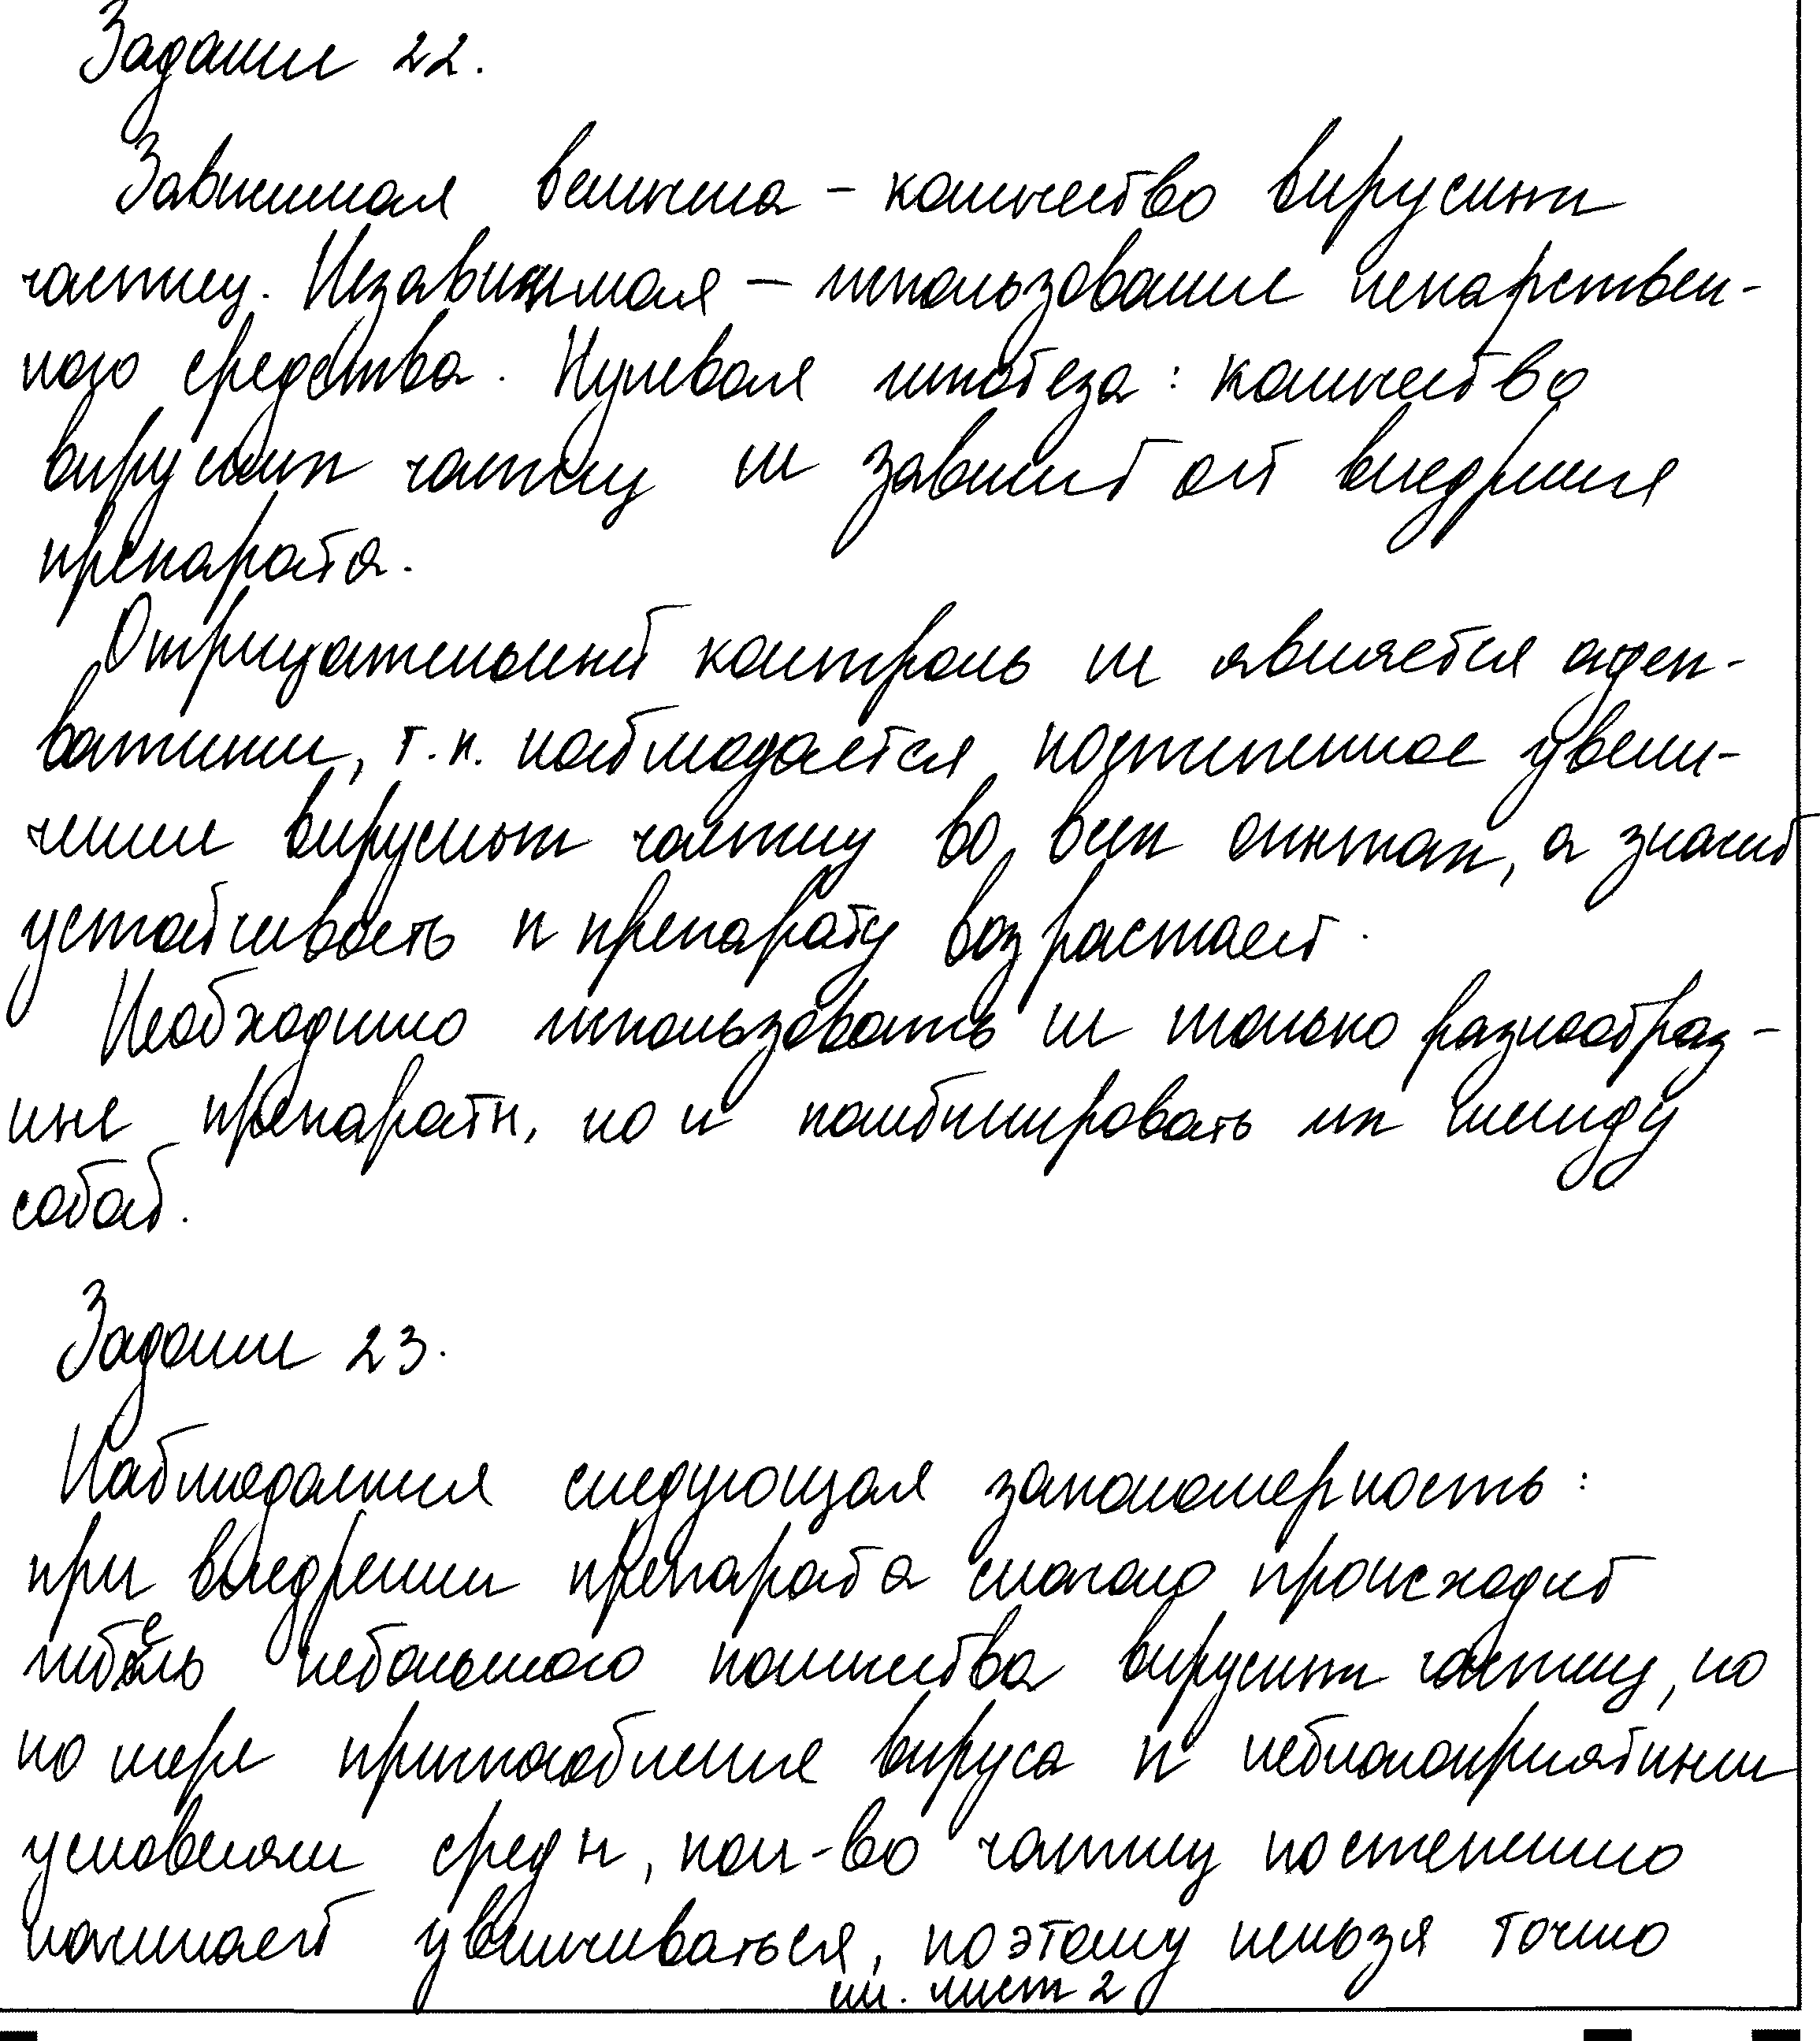 Задание 22.
Зависимая величина – количество вирусных
частиц. Независимая – использование лекарствен-
ного средства. Нулевая гипотеза: количество
вирусных частиц не зависит от внедрения
препарата.
Отрицательный контроль не является адек-
ватным, т.к. наблюдается постепенное увели-
чение вирусных частиц во всех опытах, а значит
устойчивость к препарату возрастает.
Необходимо использовать не только разнообраз-
ные препараты, но и комбинировать их между
собой.
Задание 23.
Наблюдается следующая закономерность:
при внедрении препарата сначала происходит
гибель небольшого количества вирусных частиц, но
по мере приспособления вируса к неблагоприятным
условиям среды, кол-во частиц постепенно
начинает увеличиваться, поэтому нельзя точно
см. лист 2